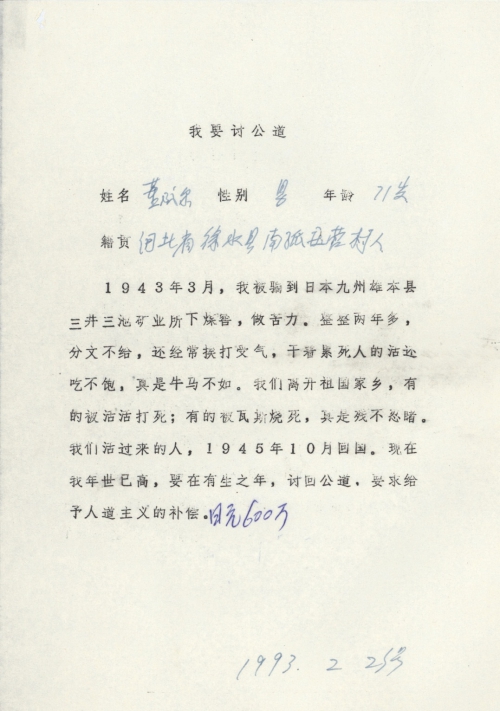 我要讨公道
姓名 董成宗 性别 男 年龄 71岁
籍贯 河北省徐水县南孤庄营村人
1943年3月，我被骗到日本九州雄本县
三井三池矿业所下煤窑，做苦力。整整两年多，
分文不给，还经常挨打受气，干着累死人的活还
吃不饱，真是牛马不如。我们离开祖国家乡，有
的被活活打死；有的被瓦斯烧死，真是残不忍睹。
我们活过来的人，1945年10月回国。现在
我年世已高，要在有生之年，讨回公道，要求给
予人道主义的补偿。日元600万
1993. 2 25号